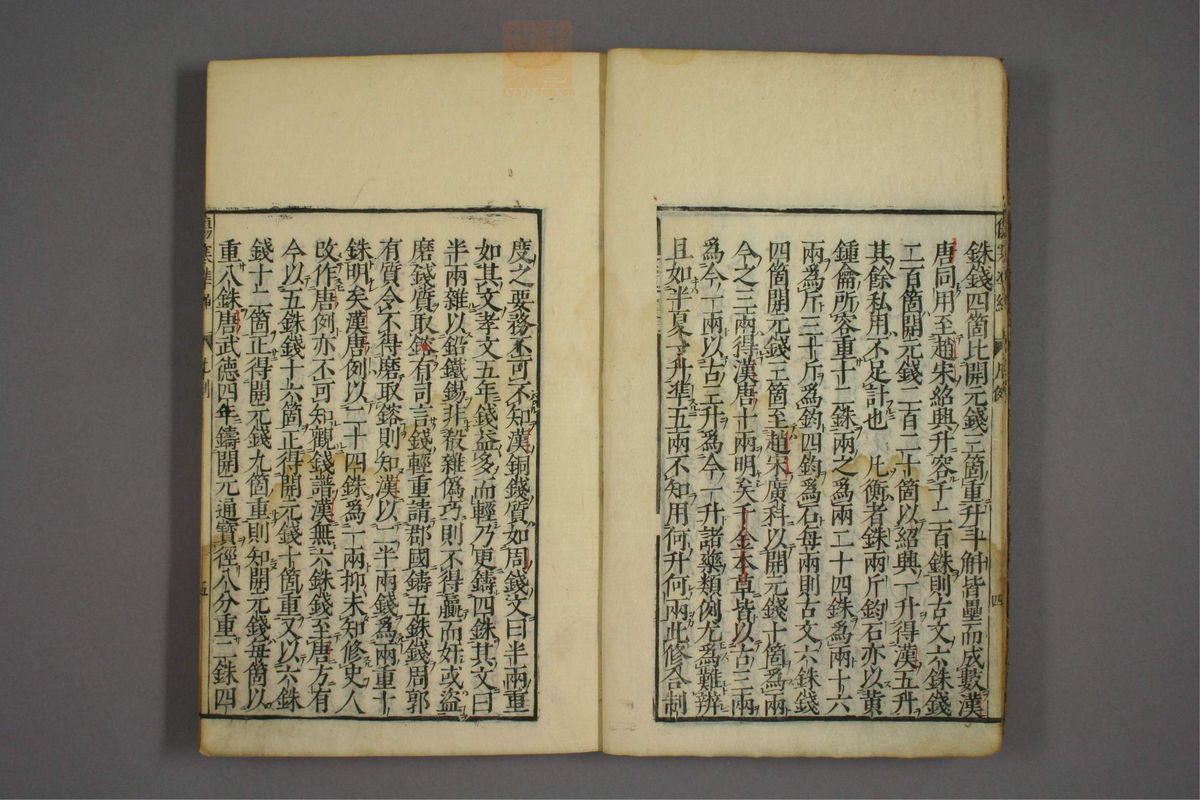 銖錢四箇比開元錢三箇重升斗斛皆壘而成數漢
唐同用至趙宋紹興升容千二百銖則古文六銖錢
二百箇開元錢一百二十箇以紹興一升得漢五升
其餘私用不足計也 凡衡者銖兩斤鈞石亦以黃
鍾侖所容重十二銖兩之爲兩二十四銖爲兩十六
兩爲斤三十斤爲鈞四鈞爲石每兩則古文六銖錢
四箇開元錢三箇至趙宋廣科以開元錢十箇爲兩
今之三兩得漢唐十兩明矣千金本草皆以古三兩
爲今一兩以古三升爲今一升諸藥類例尤爲難辨
且如半夏一升準五兩不知用何升何兩此修合制
四
度之要務不可不知漢銅錢質如周錢文曰半兩重
如其文孝文五年錢益多而輕乃更鑄四銖其文曰
半兩雜以鉛鐵錫非殽雜爲巧則不得贏而奸或盜
磨錢質取鎔有司言錢輕重請郡國鑄五銖錢周郭
有質令不得磨取鎔則知漢以一半兩錢爲兩重十
銖明矣漢唐例以二十四銖爲一兩抑未知修史人
改作唐例亦不可知觀錢譜漢無六銖錢至唐方有
今以五銖錢十六箇正得開元錢十箇重又以六銖
錢十二箇正得開元錢九箇重則知開元錢每箇以
重八銖唐武德四年鑄開元通寶徑八分重二銖四
五